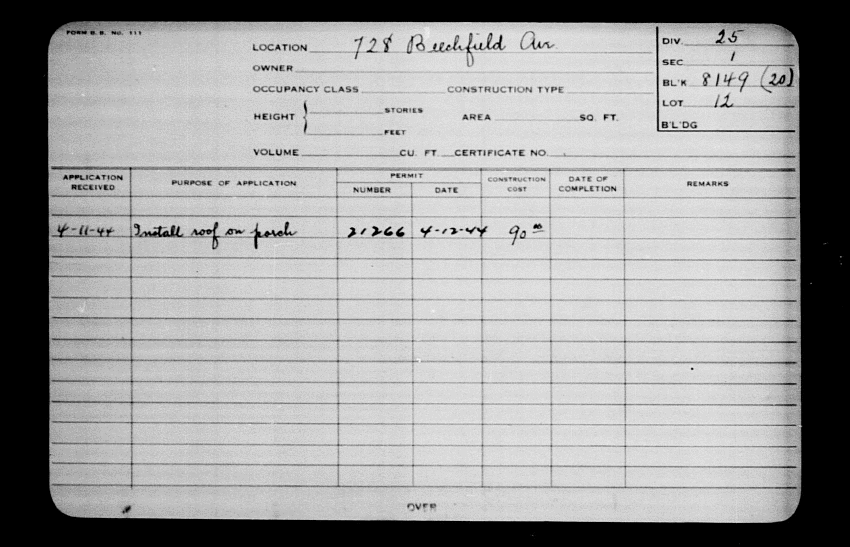 FORM B. B. NO. 111
LOCATION 728 Beechfield Ave.
OWNER
OCCUPANCY CLASS CONSTRUCTION TYPE
HEIGHT { STORIES AREA SQ. FT.
FEET
VOLUME CU. FT. CERTIFICATE NO.
DIV. 25
SEC. 1
BL'K 8149 (20)
LOT 12
B'L'DG
APPLICATION RECEIVED PURPOSE OF APPLICATION PERMIT NUMBER DATE CONSTRUCTION COST DATE OF COMPLETION REMARKS
4-11-44 Install roof on porch 21266 4-12-44 90 00
OVER